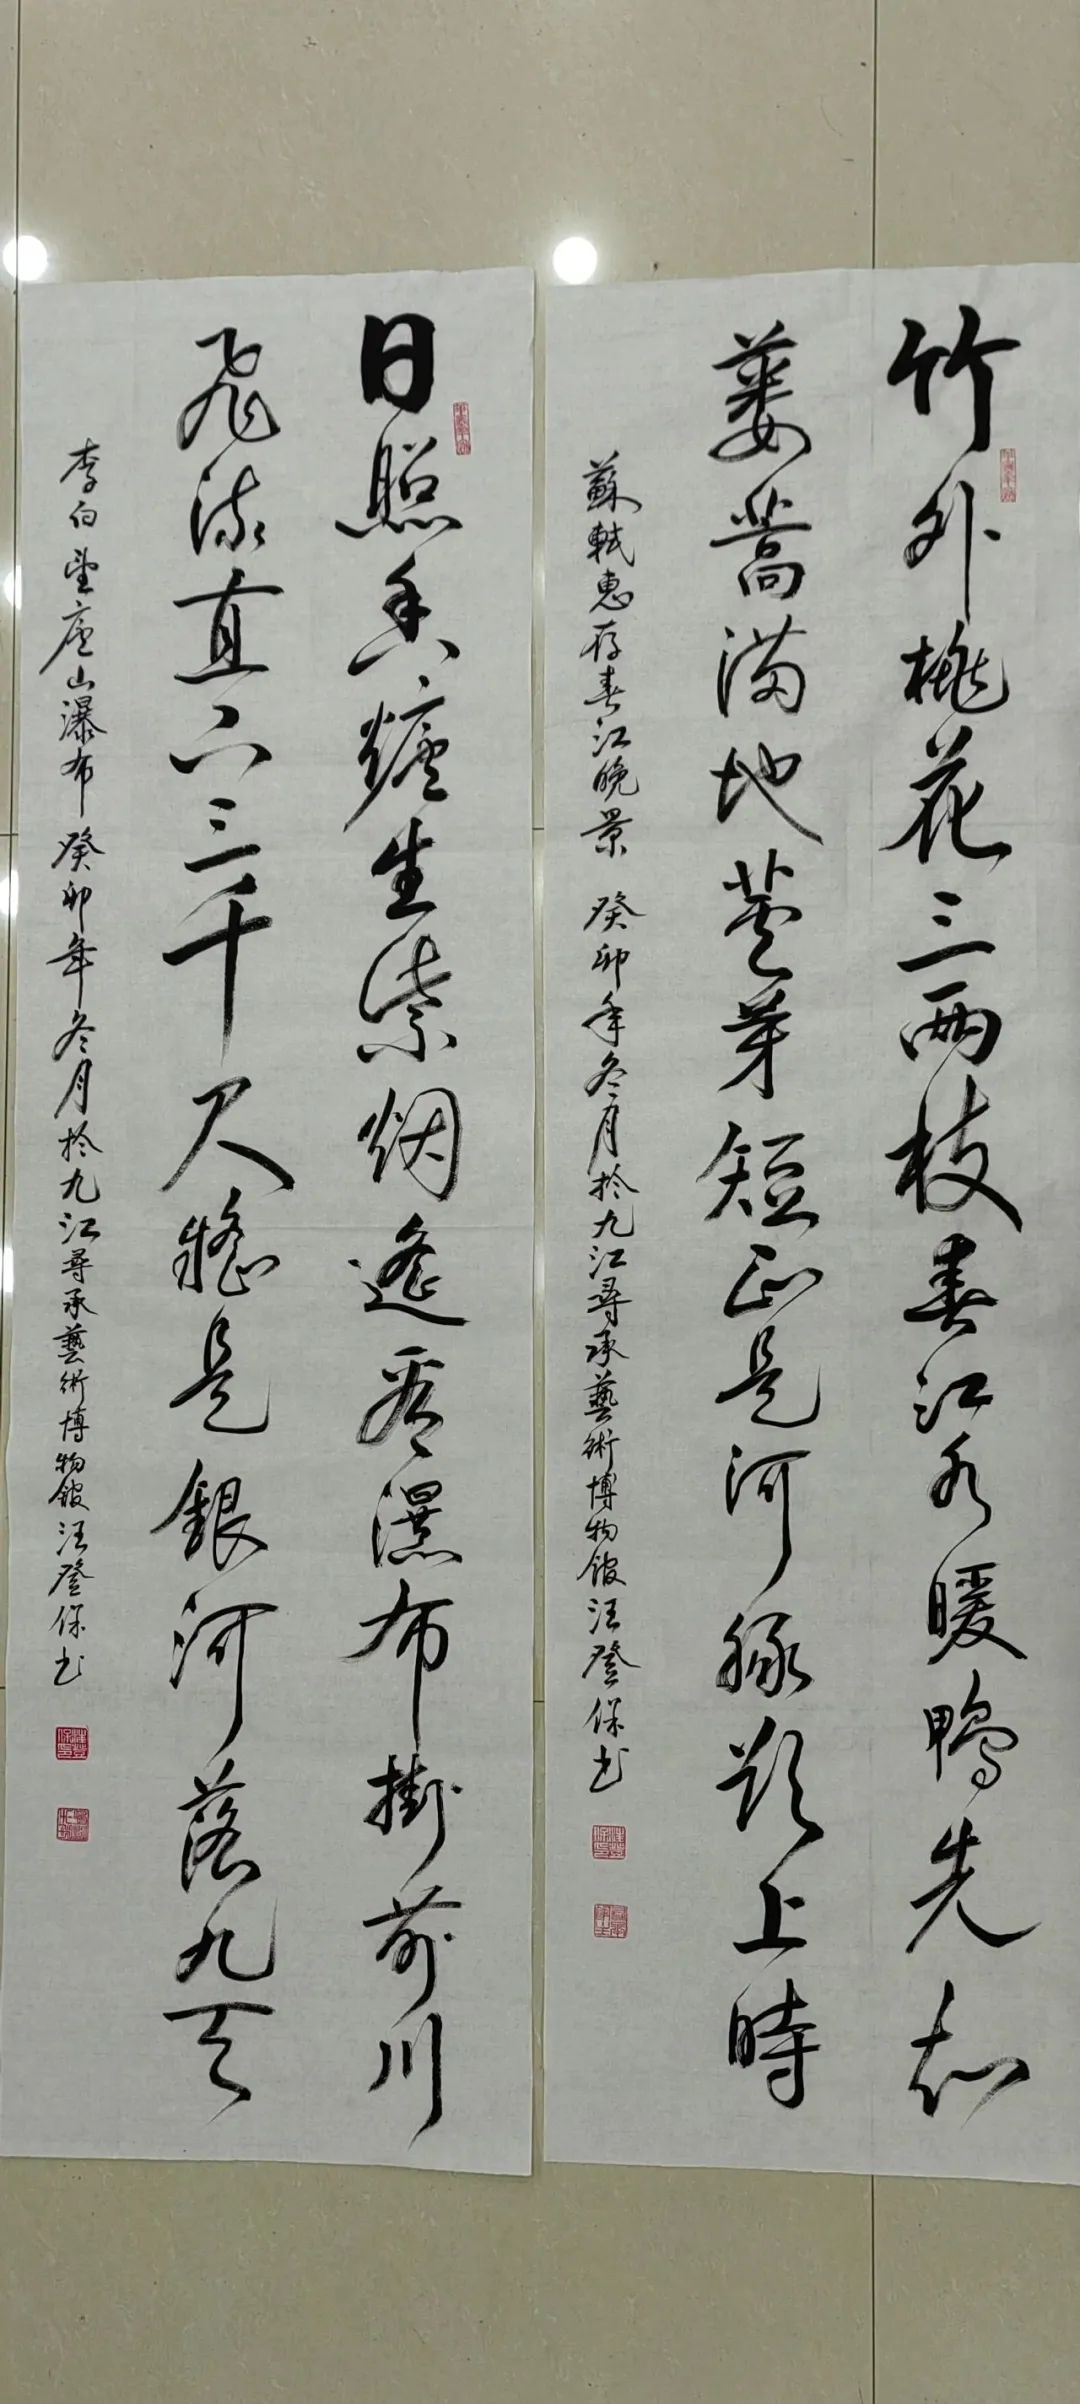 竹外桃花三兩枝春江水暖鴨先知
蔞蒿滿地蘆芽短正是河豚欲上時
蘇軾惠存春江晚景 癸卯年冬月於九江尋承藝術博物館汪登保书
日照香爐生紫烟遙看瀑布掛前川
飛流直下三千尺疑是銀河落九天
李白望庐山瀑布 癸卯年冬月於九江尋承藝術博物館汪登保书